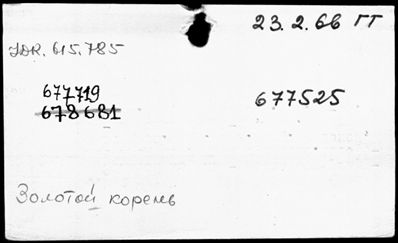 23. 2. 66 ГГ
JDR. 615.785
677719
677525
678681
Золотой корень